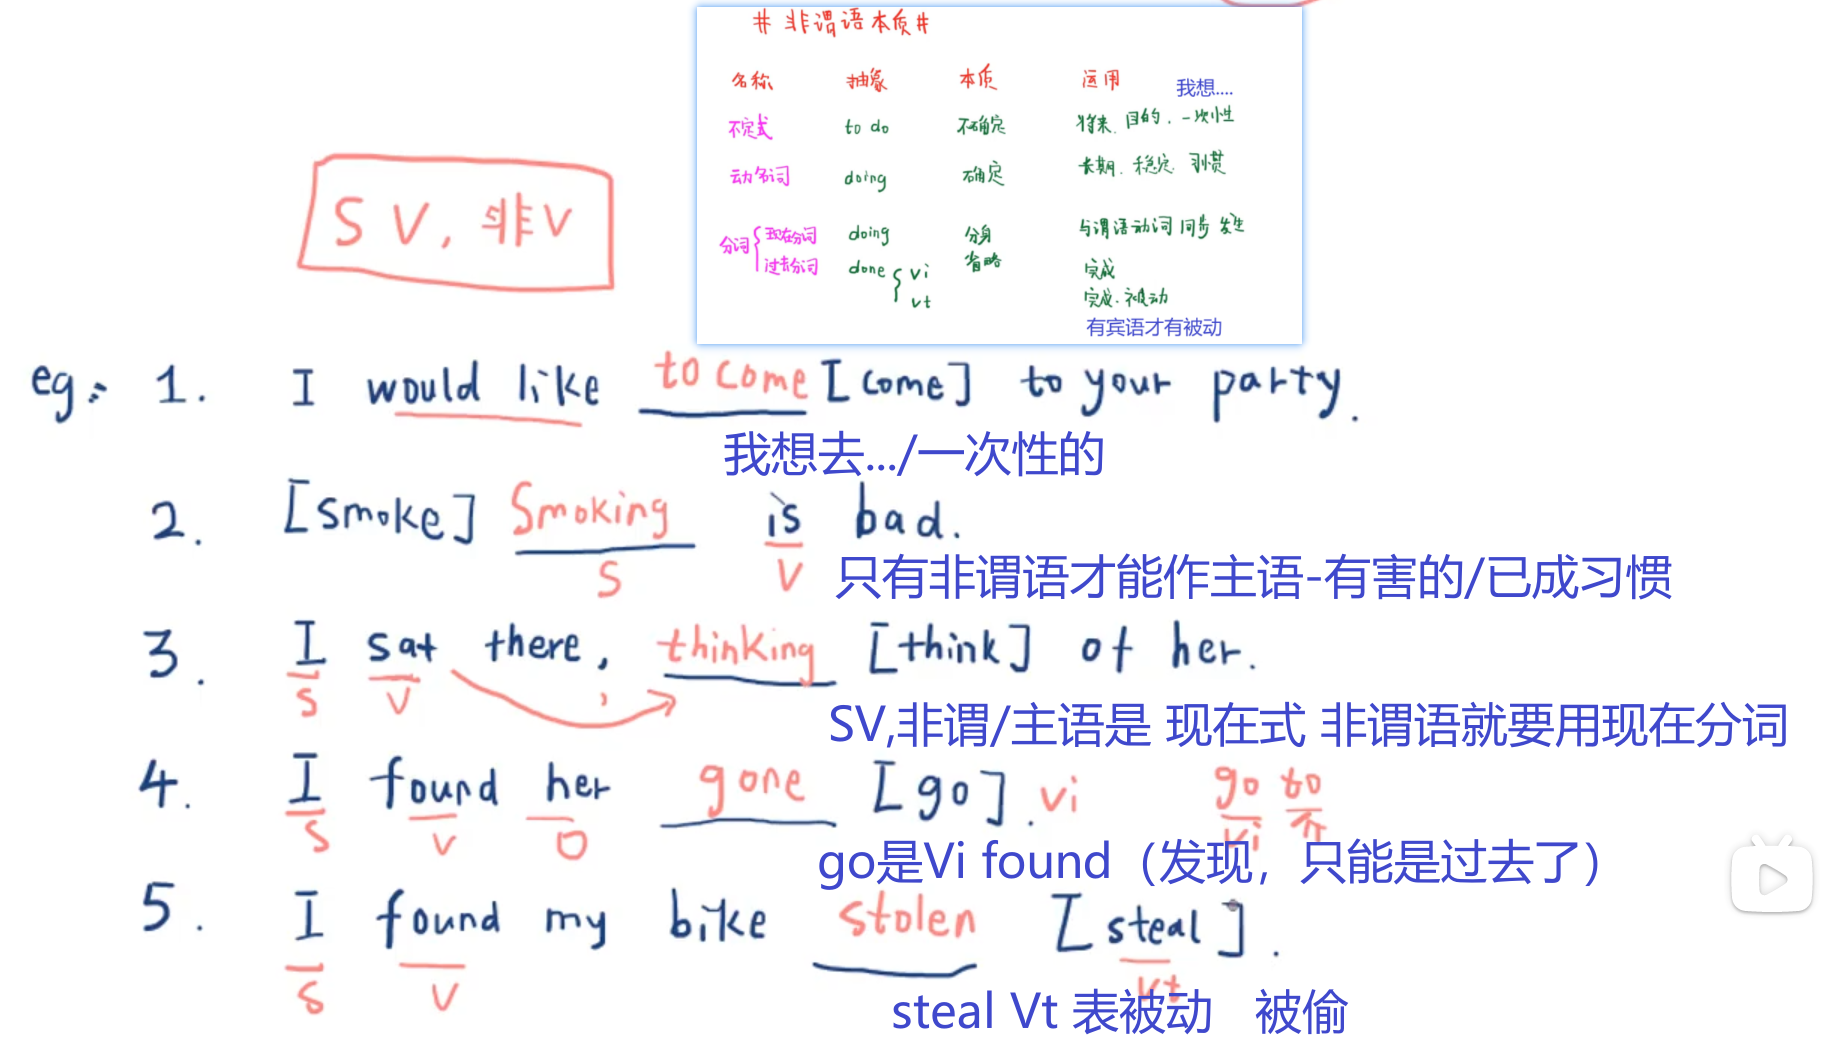 # 非谓语本质#
名称 抽象 本质 运用 我想....
不定式 to do 不确定 将来、目的、一次性
动名词 doing 确定 长期、稳定、习惯
分词{ 现在分词 doing 分身 与谓语动词同步发生
过去分词 done{ vi 省略 完成
vt 完成、被动
有宾语才有被动
S V, 非V
eg: 1. I would like to come [come] to your party.
我想去.../一次性的
2. [smoke] Smoking is bad.
S V 只有非谓语才能作主语-有害的/已成习惯
3. I sat there, thinking [think] of her.
S V ,
SV,非谓/主语是 现在式 非谓语就要用现在分词
4. I found her gone [go]. vi go to
S V O vi 介
go是Vi found（发现，只能是过去了）
5. I found my bike stolen [steal].
S V vt
steal Vt 表被动 被偷